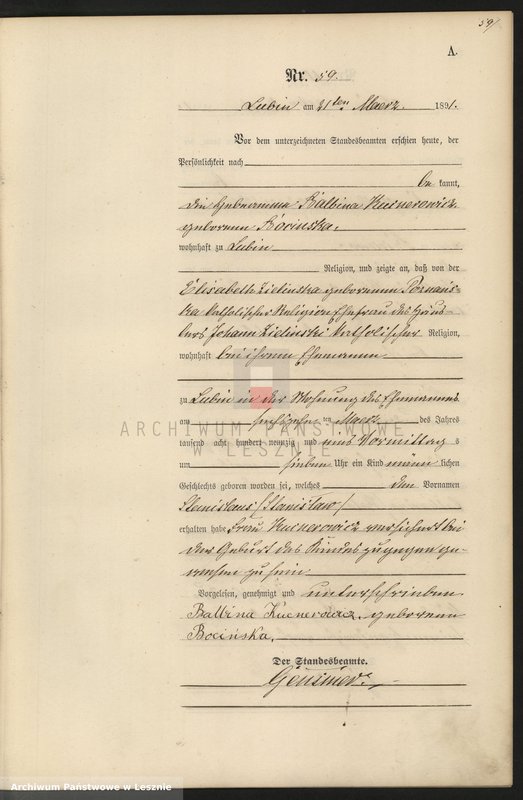 59/
A.
Nr. 59.
Lubin am 21ten Maerz 1891.
Vor dem unterzeichneten Standesbeamten erschien heute, der
Persönlichkeit nach
be kannt,
die Hebeamme Balbina Kucnerowicz
geborenen Bocinska,
wohnhaft zu Lubin
Religion, und zeigte an, daß von der
Elisabeth Zielinska geborenen Poznańs-
ka katholischer Religion Ehefrau des Häus-
lers Johann Zielinski katholischer Religion,
wohnhaft bei ihrem Ehemanne
zu Lubin in der Wohnung des Ehemannes
am sechszehn ten Maerz des Jahres
tausend acht hundert neunzig und eins Vormittag s
um sieben Uhr ein Kind männ lichen
Geschlechts geboren worden sei, welches den Vornamen
Stanislaus /Stanisław/
erhalten habe Frau Kucnerowicz versichert bei
der Geburt des Kindes zugegen ge-
wesen zu sein
Vorgelesen, genehmigt und unterschrieben
Balbina Kucnerowicz, geborenen
Bocińska.
Der Standesbeamte.
ARCHIWUM PAŃSTWOWE
W LESZNIE
Archiwum Państwowe w Lesznie